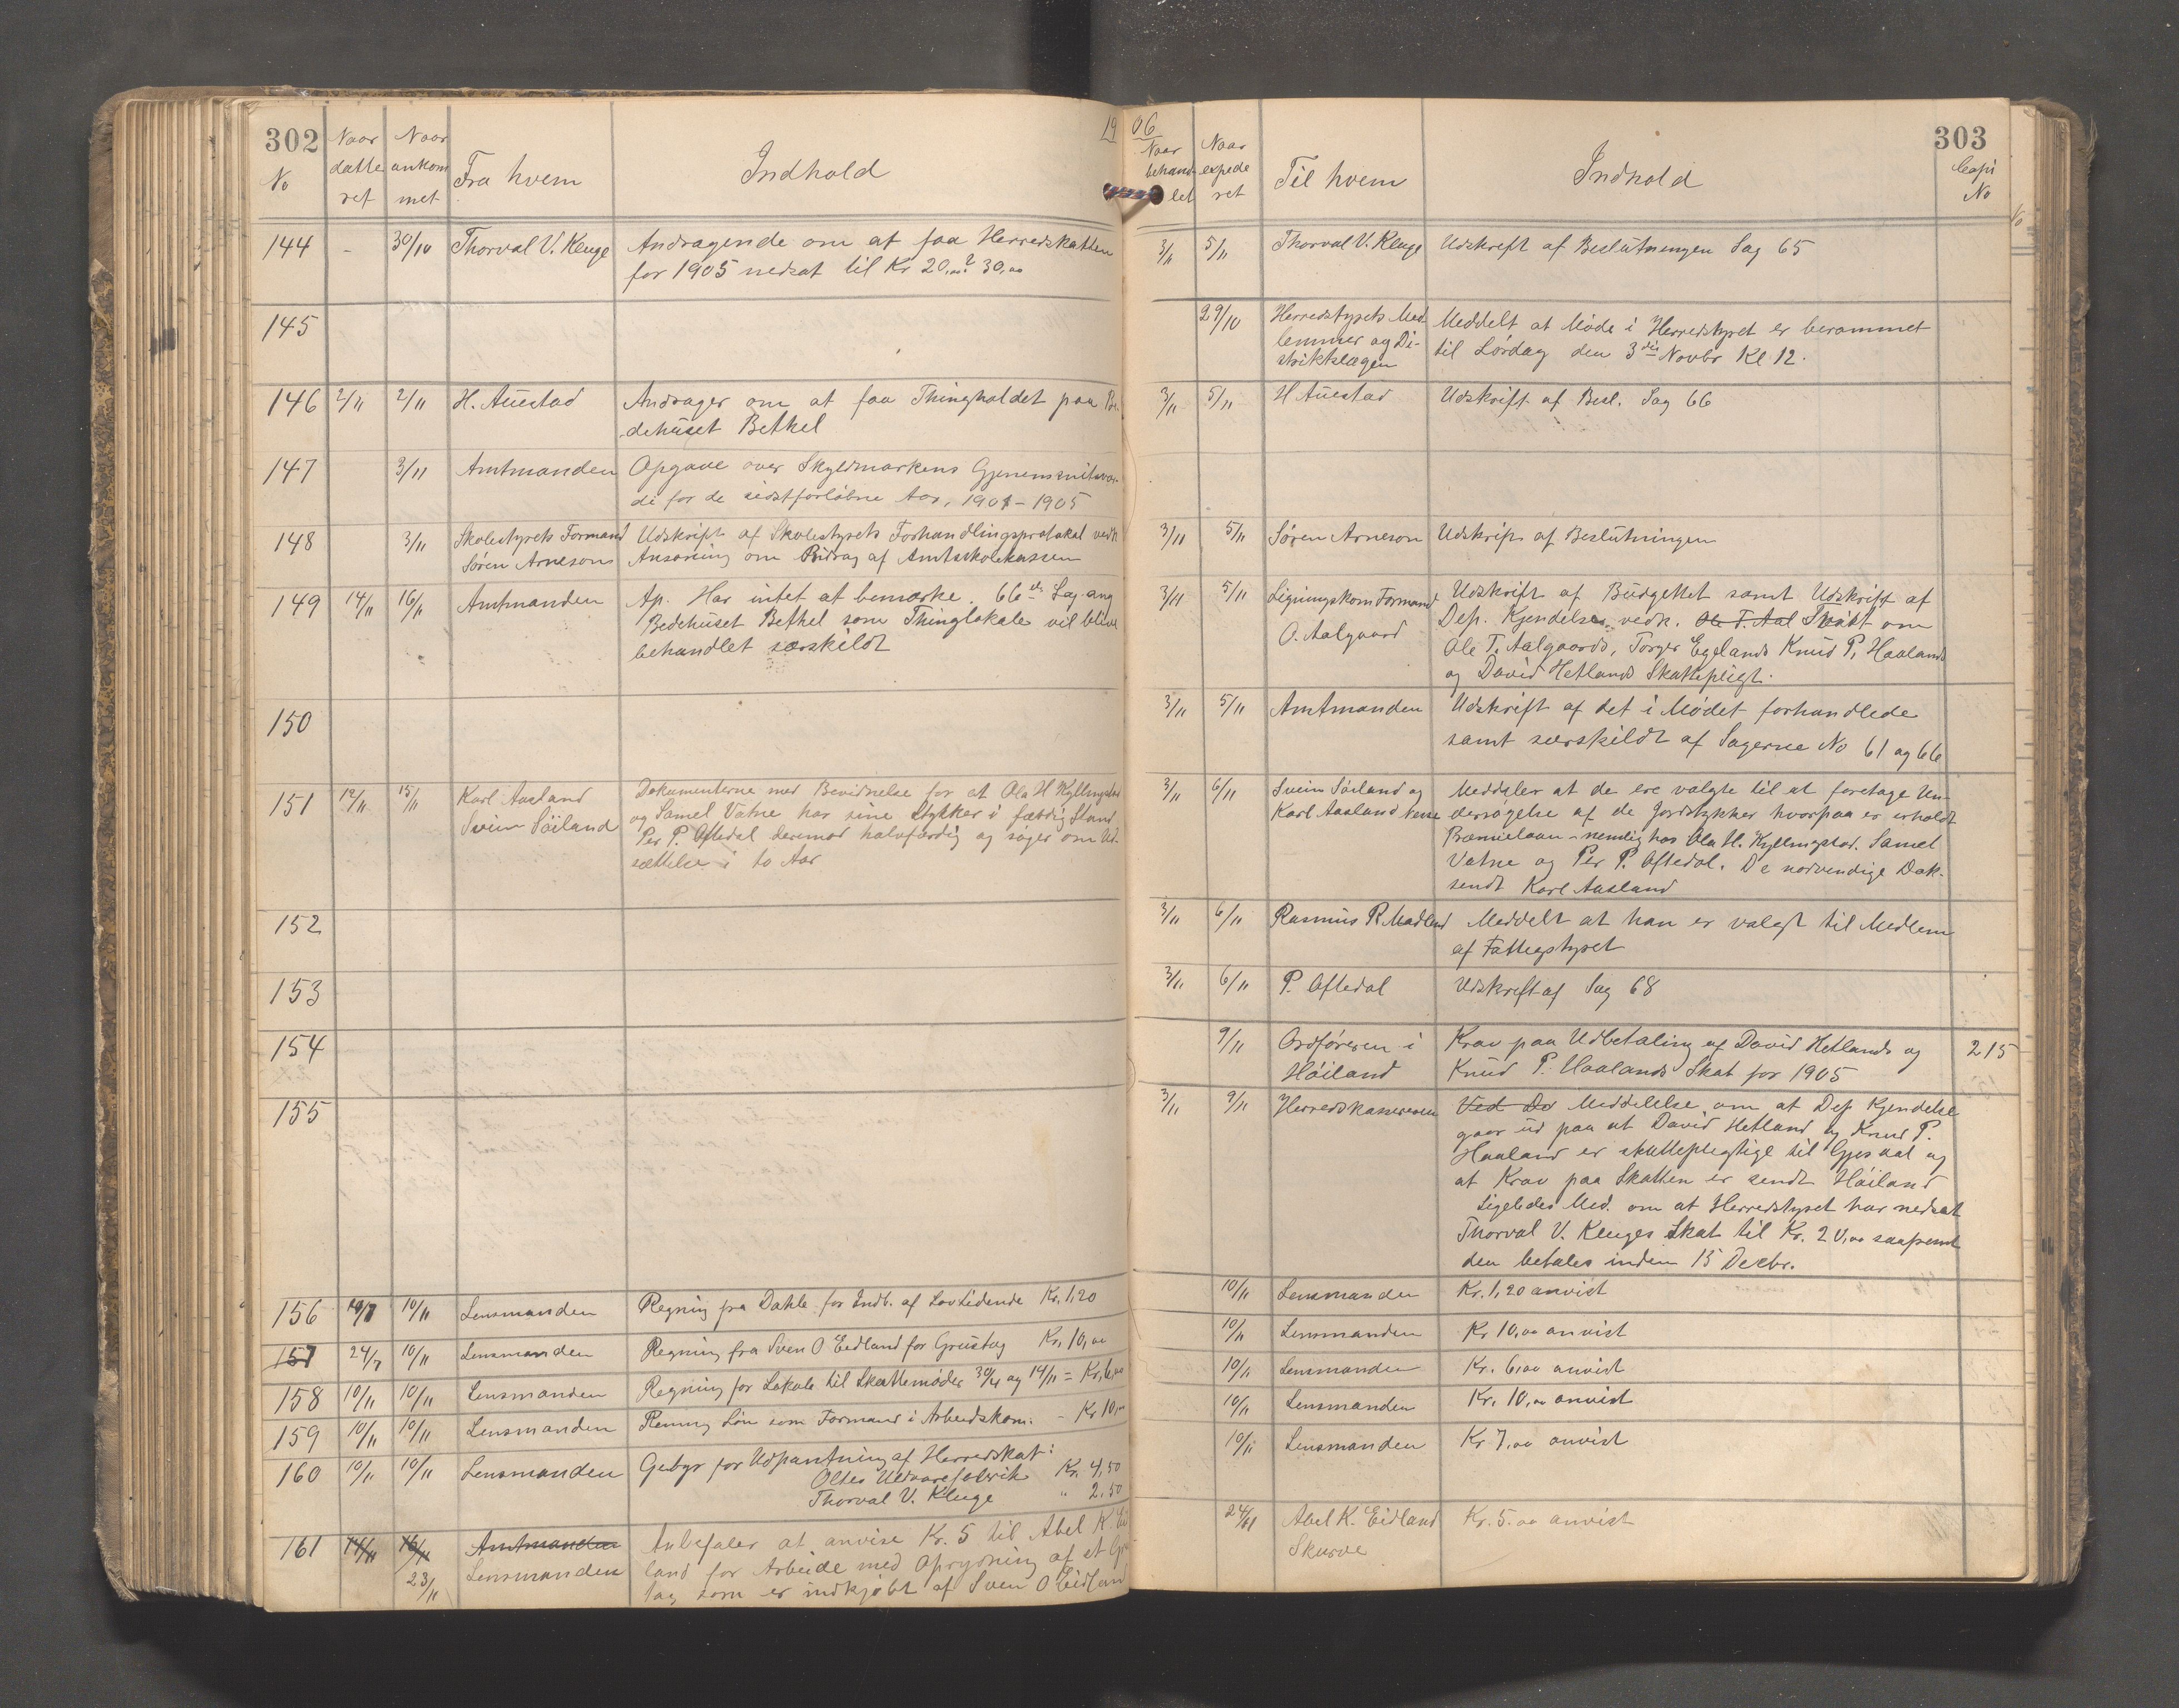 302
19
No
Naar
datte
ret
Naar
ankom
met
Fra hvem
Indhold
144 - 30/10 Thorval V. Kluge Andragende om at faa Herredskatten
for 1905 nedsat til Kr 20,00 ? 30,00
145
146 2/11 2/11 H. Auestad Andrager om at faa Thingholdet paa Be-
dehuset Bethel
147 3/11 Amtmanden Opgave over Skyldmarkens Gjenemsnitsvær-
di for de sidstforløbne Aar, 1901-1905
148 3/11 Skolestyrets Formand Udskrift af Skolestyrets Forhandlingsprotokol vedk
Søren Arneson Ansøkning om Bidrag af Amtsskolekassen
149 14/11 16/11 Amtmanden Ap. Har intet at bemærke. 66de Sag ang
Bedehuset Bethel som Thinglokale vil blive
behandlet særskildt
150
151 12/11 15/11 Karl Aasland Dokumenterne med Bevidnelse for at Ola H Kyllingstad
Svein Söiland og Samel Vatne har sine Stykker i færdig Stand
Per P. Oftedal derimod halvfærdig og søger om Ud-
sættelse i to Aar
152
153
154
155
156 10/11 Lensmanden Regning fra Dahle for Indb. af Lovtidende Kr. 1,20
157 24/7 10/11 Lensmanden Regning fra Sven O Eidland for Grustag Kr. 10,00
158 10/11 10/11 Lensmanden Regning for Lokale til Skattemøder 30/4 og 14/11 = Kr. 6,00
159 10/11 10/11 Lensmanden Løn som Formand i Arbeidskom. - Kr 10,00
160 10/11 10/11 Lensmanden Gebyr for Udpantning af Herredskat:
Oltes Uldvarefabrik Kr. 4,50
Thorval V. Kluge " 2,50
161 14/11 16/11 Amtmanden Anbefaler at anvise Kr. 5 til Abel K. Eid
23/11 Lensmanden land for Arbeide med Oprydning af et Gru
tag som er indkjøbt af Sven O Eidland
06
303
Naar
behand
let
Naar
expede
ret
Til hvem
Indhold
Copi
No
3/11 5/11 Thorval V. Kluge Udskrift af Beslutningen Sag 65
29/10 Herredstyrets Med- Meddelt at Møde i Herredstyret er berammet
lemmer og Di- til Lørdag den 3die Novbr Kl 12.
striktslægen
3/11 5/11 H Auestad Udskrift af Besl. Sag 66
3/11 5/11 Søren Arneson Udskrift af Beslutningen
3/11 5/11 Ligningskom Formand Udskrift af Budgettet samt Udskrift af
O. Aalgaard Dep. Kjendelse vedk. Ole T. Aal Tvist om
Ole T. Aalgaards, Torger Egelands Knud P. Haalands
og David Hetlands Skattepligt.
3/11 5/11 Amtmanden Udskrift af det i Mødet forhandlede
samt særskildt af Sagerne No 61 og 66
3/11 6/11 Svein Söiland og Meddeler at de ere valgte til at foretage Un-
Karl Aasland dersøgelse af de Jordstykker hvorpaa er erholdt
Præmielaan - nemlig hos Ola H. Kyllingstad. Samel
Vatne og Per P. Oftedal. De nødvendige Dok.
sendt Karl Aasland
3/11 6/11 Rasmus R. Madland Meddelt at han er valgt til Medlem
af Fattigstyret
3/11 6/11 P. Oftedal Udskrift af Sag 68
9/11 Ordføreren i Krav paa Udbetaling af David Hetlands og 215
Høiland Knud P. Haalands Skat for 1905
3/11 9/11 Herredskassereren Ved De Meddelelse om at Dep Kjendelse
gaar ud paa at David Hetland og Knud P.
Haaland er skattepligtige til Gjesdal og
at Krav paa Skatten er sendt Høiland
Ligeledes Med. om at Herredstyret har nedsat
Thorval V. Kluges Skat til Kr. 20,00 saafremt
den betales inden 15 Decbr.
10/11 Lensmanden Kr. 1,20 anvist
10/11 Lensmanden Kr 10,00 anvist
10/11 Lensmanden Kr. 6,00 anvist
10/11 Lensmanden Kr. 10,00 anvist
10/11 Lensmanden Kr 7,00 anvist
24/11 Abel K. Eidland Kr. 5.00 anvist
Skurve